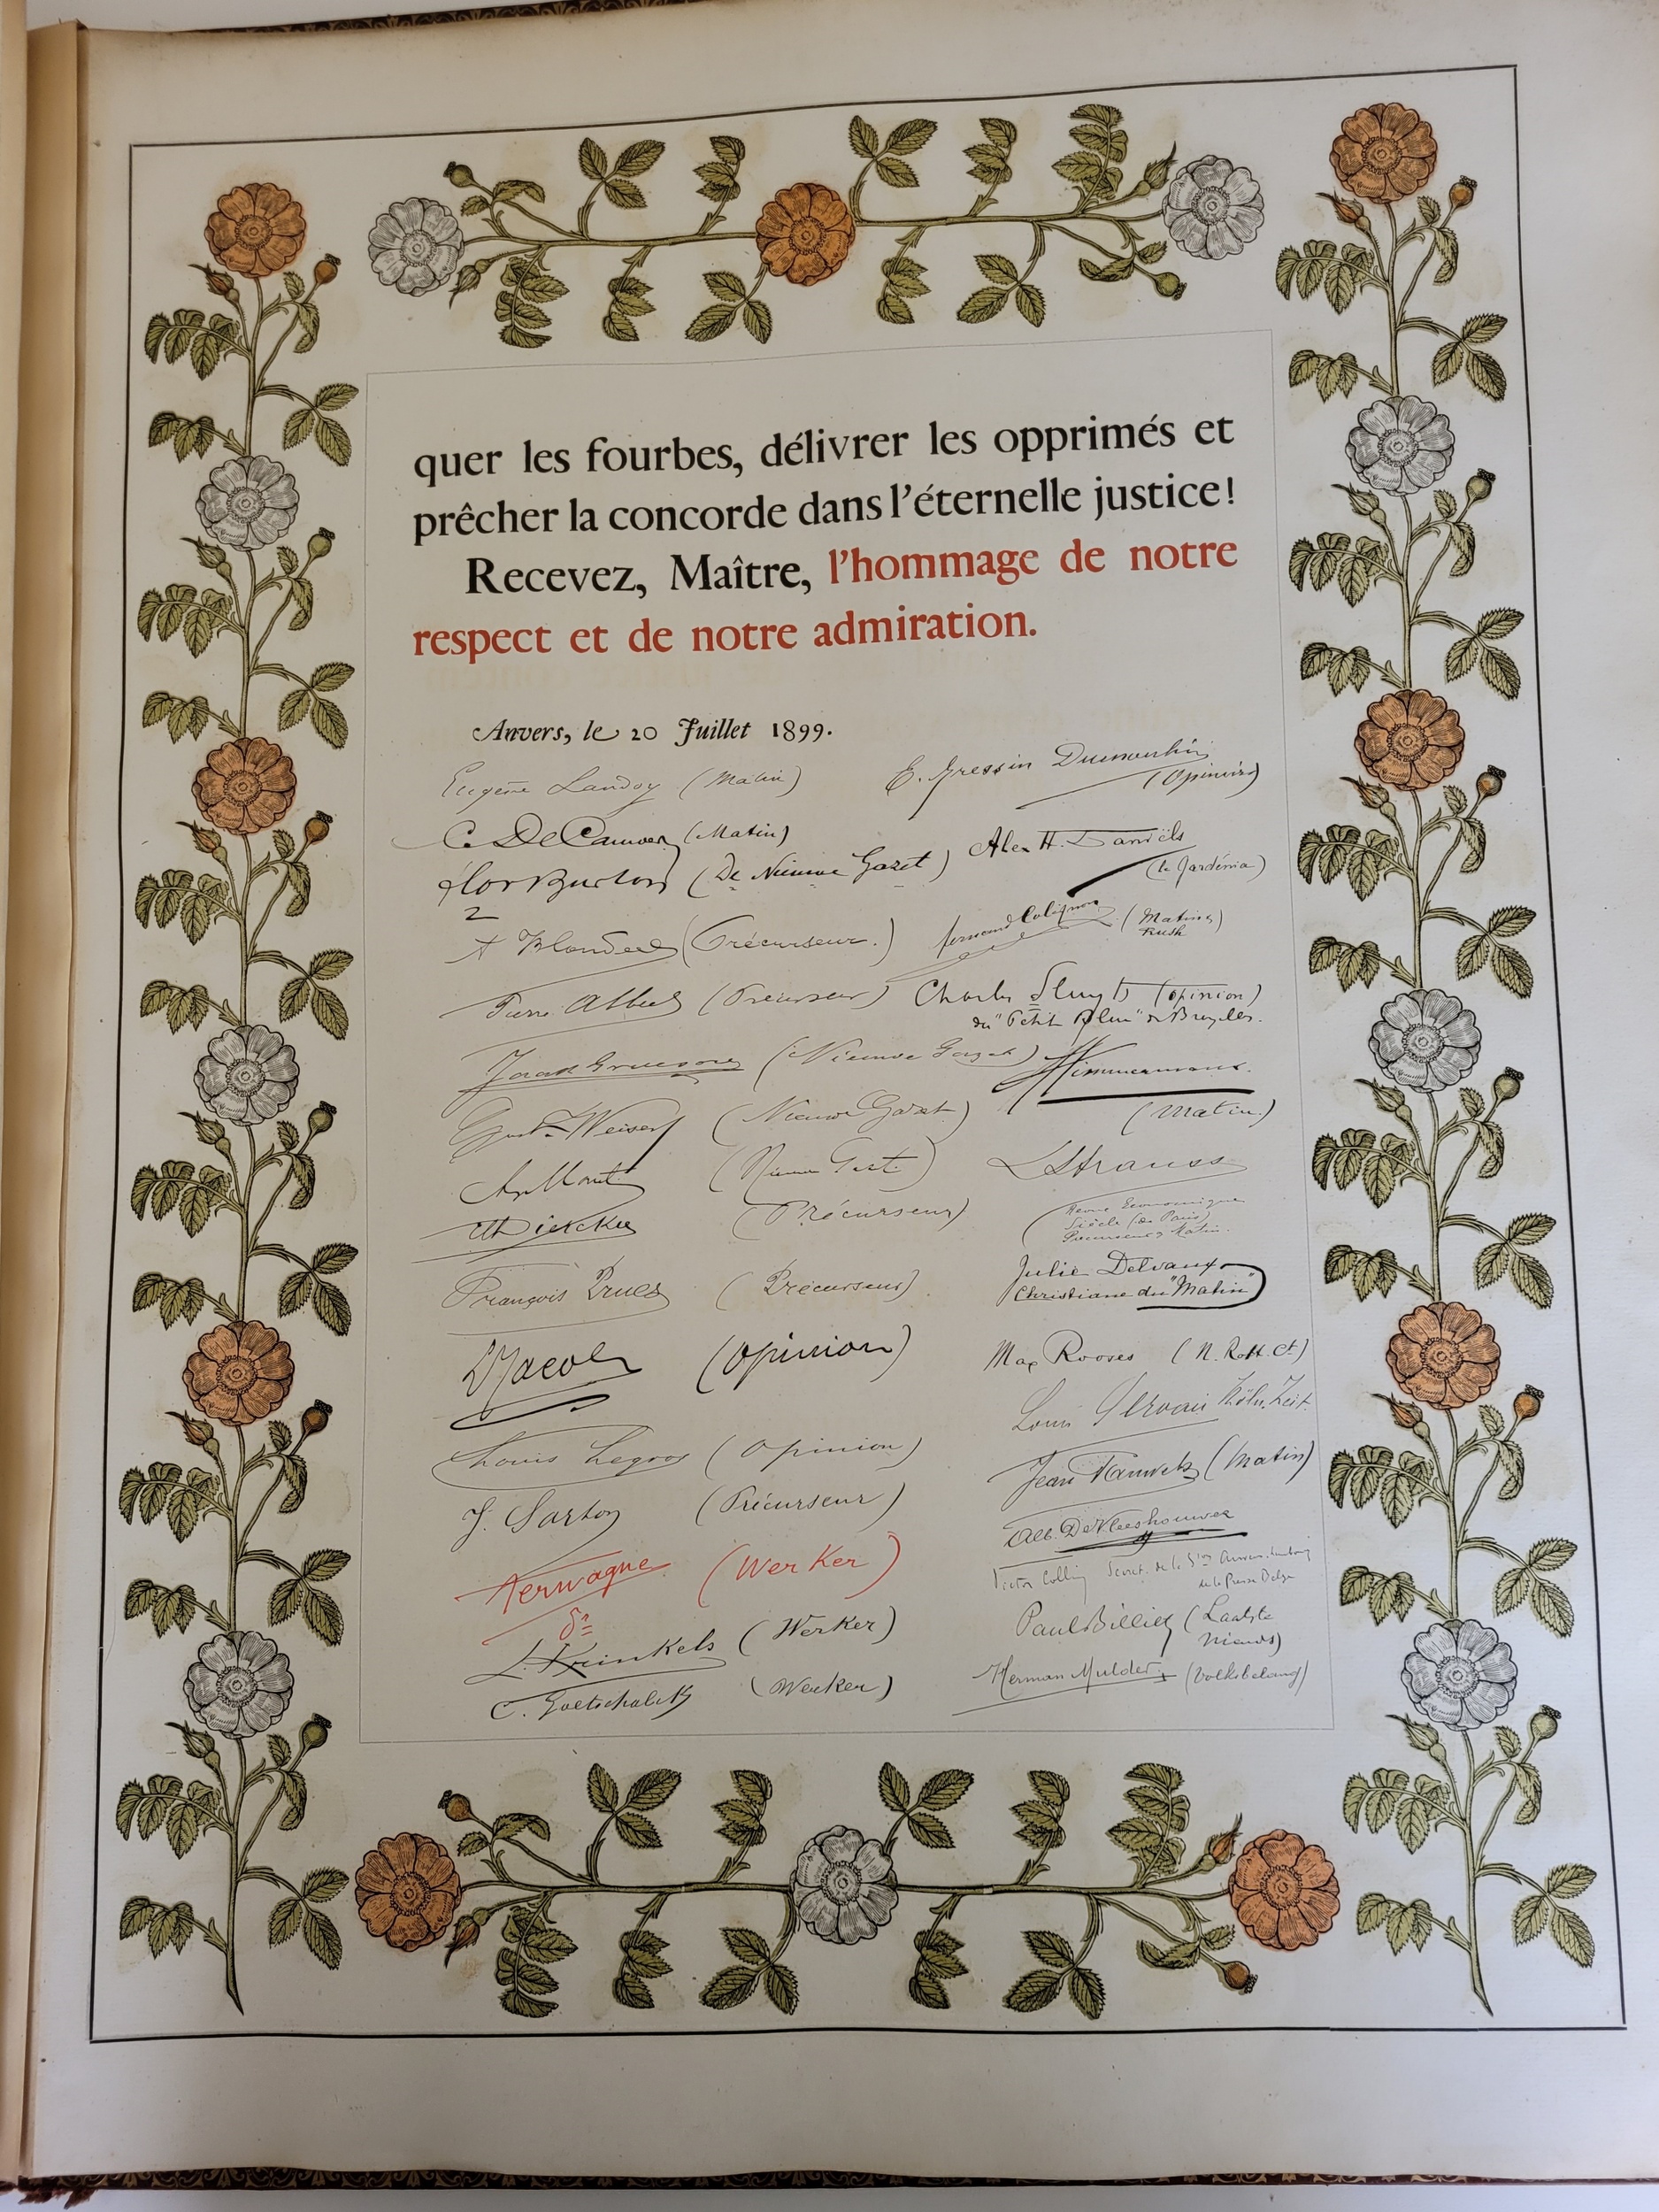 quer les fourbes, délivrer les opprimés et
prêcher la concorde dans l'éternelle justice!
Recevez, Maître, l'hommage de notre
respect et de notre admiration.
Anvers, le 20 Juillet 1899.
Eugène Landoy (Matin)
C. De Cauwer (Matin)
Flor Burton (De Nieuwe Gazet)
A Blondeel (Précurseur.)
(Précurseur)
(Nieuwe Gazet)
Gust. Weiser (Nieuwe Gazet)
(Précurseur)
François Prues (Précurseur)
(Opinion)
Louis Legros (Opinion)
J. Sarton (Précurseur)
Terwagne (Werker)
Dr
L. Krinkels (Werker)
C. Goetschalck (Werker)
E. Gressin Dumoulin
(Opinion)
Alex H. Daniëls
(le Gardénia)
Fernand Colignon (Matin)
Charles Sluyts (Opinion)
du "Petit Bleu" de Bruxelles.
Wimmermans.
(Matin.)
L Strauss
Revue Economique
Siècle (de Paris)
Précurseur, Matin.
Julia Delvaux
Christiane du "Matin"
Max Rooses (N. Rott. Ct)
Louis Gervais Köln. Zeit.
Jean Pauwels (Matin)
Alb. De Vleeshouwer
Victor Collin
de la Presse Belge
Paul Billiet (Laatste
Nieuws)
Herman Mulder (Volksbelang)